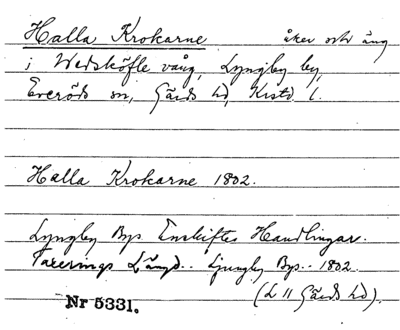 Halla Krokarne åker och äng
i Wedsköfle vång, Lyngby by,
Everöds sn, Gärds hd, Kristd l.
Halla Krokarne 1802.
Lyngby Bys Enskiftes Handlingar.
Taxerings Längd.. Ljungby Bys.. 1802.
(L 11 Gärds hd).
Nr 5331.